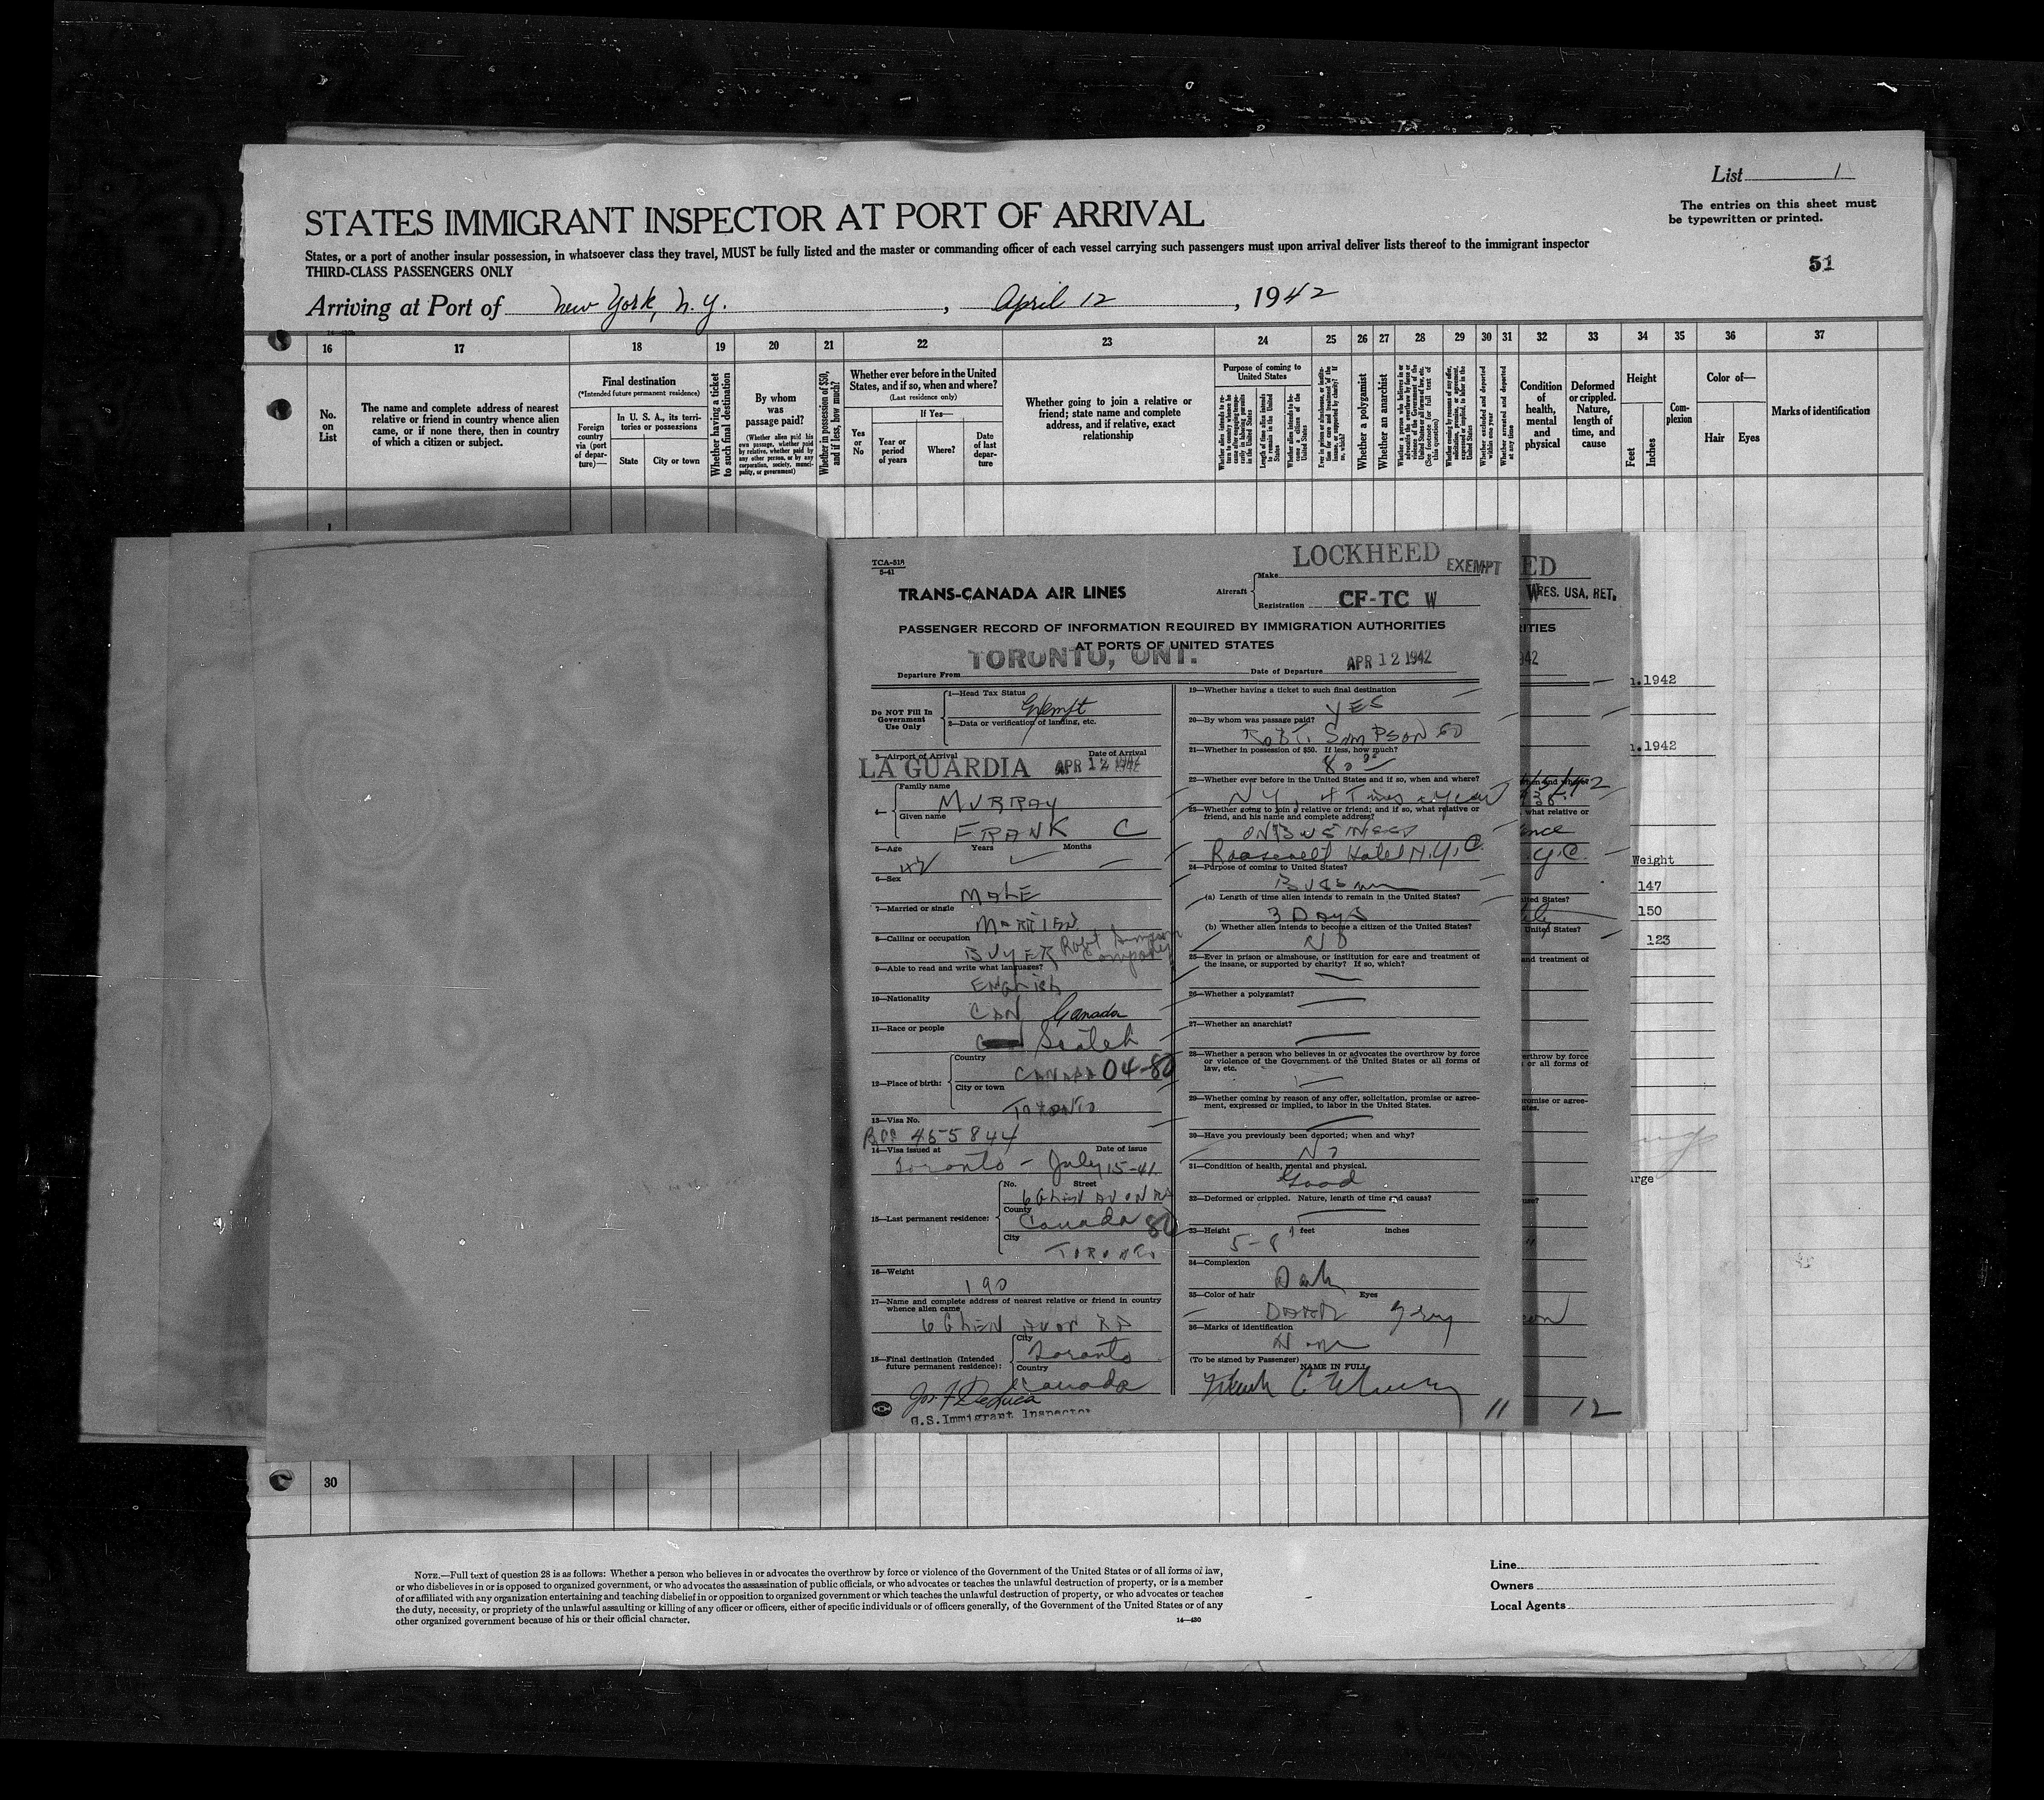 List 1
The entries on this sheet must
be typewritten or printed.
STATES IMMIGRANT INSPECTOR AT PORT OF ARRIVAL
States, or a port of another insular possession, in whatsoever class they travel, MUST be fully listed and the master or commanding officer of each vessel carrying such passengers must upon arrival deliver lists thereof to the immigrant inspector
THIRD-CLASS PASSENGERS ONLY
51
Arriving at Port of New York, N.Y. , April 12 , 1942
16 17 18 19 20 21 22 23 24 25 26 27 28 29 30 31 32 33 34 35 36 37
No. on List
The name and complete address of nearest relative or friend in country whence alien came, or if none there, then in country of which a citizen or subject.
Final destination
(*Intended future permanent residence)
Foreign country via (port of departure)—
In U. S. A., its territories or possessions
State
City or town
Whether having a ticket to such final destination
By whom was passage paid?
(Whether alien paid his own passage, whether paid by relative, whether paid by any other person, or by any corporation, society, municipality, or government)
Whether in possession of $50, and if less, how much?
Whether ever before in the United States, and if so, when and where?
(Last residence only)
Yes or No
If Yes—
Year or period of years
Where?
Date of last departure
Whether going to join a relative or friend; state name and complete address, and if relative, exact relationship
Purpose of coming to United States
Length of time alien intends to remain in the United States
Whether alien intends to become a citizen of the United States
Whether a polygamist
Whether an anarchist
Condition of health, mental and physical
Deformed or crippled. Nature, length of time, and cause
Height
Feet
Inches
Complexion
Color of—
Hair
Eyes
Marks of identification
TCA-518
5-41
TRANS-CANADA AIR LINES
Aircraft
Make LOCKHEED
EXEMPT
Registration CF-TC W
PASSENGER RECORD OF INFORMATION REQUIRED BY IMMIGRATION AUTHORITIES
AT PORTS OF UNITED STATES
Departure From TORONTO, ONT.
Date of Departure APR 12 1942
Do NOT Fill In
Government
Use Only
1—Head Tax Status
Exempt
2—Data or verification of landing, etc.
3—Airport of Arrival Date of Arrival
LA GUARDIA APR 12 1942
4—
Family name
MURRAY
Given name
FRANK C
5—Age Years Months
42
6—Sex
MALE
7—Married or single
MARRIED
8—Calling or occupation
BUYER Robt Simpson Company
9—Able to read and write what languages?
ENGLISH
10—Nationality
CAN Canada
11—Race or people
Scotch
12—Place of birth:
Country
CANADA 04-80
City or town
TORONTO
13—Visa No.
BCC 455844
14—Visa issued at Date of issue
Toronto - July 15-41
15—Last permanent residence:
No. Street
6 GLEN AVON RD
County
Canada 80
City
TORONTO
16—Weight
190
17—Name and complete address of nearest relative or friend in country
whence alien came
6 GLEN AVON RD
18—Final destination (Intended
future permanent residence):
City
Toronto
Country
Canada
U.S. Immigrant Inspector
19—Whether having a ticket to such final destination
YES
20—By whom was passage paid?
ROBT. SIMPSON CO
21—Whether in possession of $50. If less, how much?
80
22—Whether ever before in the United States and if so, when and where?
NY, 4 Times a year
23—Whether going to join a relative or friend; and if so, what relative or
friend, and his name and complete address?
ON BUSINESS
Roosevelt Hotel N.Y.C.
24—Purpose of coming to United States?
Business
(a) Length of time alien intends to remain in the United States?
3 DAYS
(b) Whether alien intends to become a citizen of the United States?
NO
25—Ever in prison or almshouse, or institution for care and treatment of
the insane, or supported by charity? If so, which?
26—Whether a polygamist?
27—Whether an anarchist?
28—Whether a person who believes in or advocates the overthrow by force
or violence of the Government of the United States or all forms of
law, etc.
29—Whether coming by reason of any offer, solicitation, promise or agree-
ment, expressed or implied, to labor in the United States.
30—Have you previously been deported; when and why?
No
31—Condition of health, mental and physical.
Good
32—Deformed or crippled. Nature, length of time and cause?
33—Height feet inches
5-8
34—Complexion
Dark
35—Color of hair Eyes
DARK Grey
36—Marks of identification
None
(To be signed by Passenger)
NAME IN FULL
Frank C Murray
11
ED
W RES. USA, RET.
ITIES
942
12
n.1942
n.1942
Weight
147
150
123
arge
30
NOTE.—Full text of question 28 is as follows: Whether a person who believes in or advocates the overthrow by force or violence of the Government of the United States or all forms of law,
or who disbelieves in or is opposed to organized government, or who advocates the assassination of public officials, or who advocates or teaches the unlawful destruction of property, or is a member
of or affiliated with any organization entertaining and teaching disbelief in or opposition to organized government or which teaches the unlawful destruction of property, or who advocates or teaches
the duty, necessity, or propriety of the unlawful assaulting or killing of any officer or officers, either of specific individuals or of officers generally, of the Government of the United States or of any
other organized government because of his or their official character.
14—430
Line
Owners
Local Agents